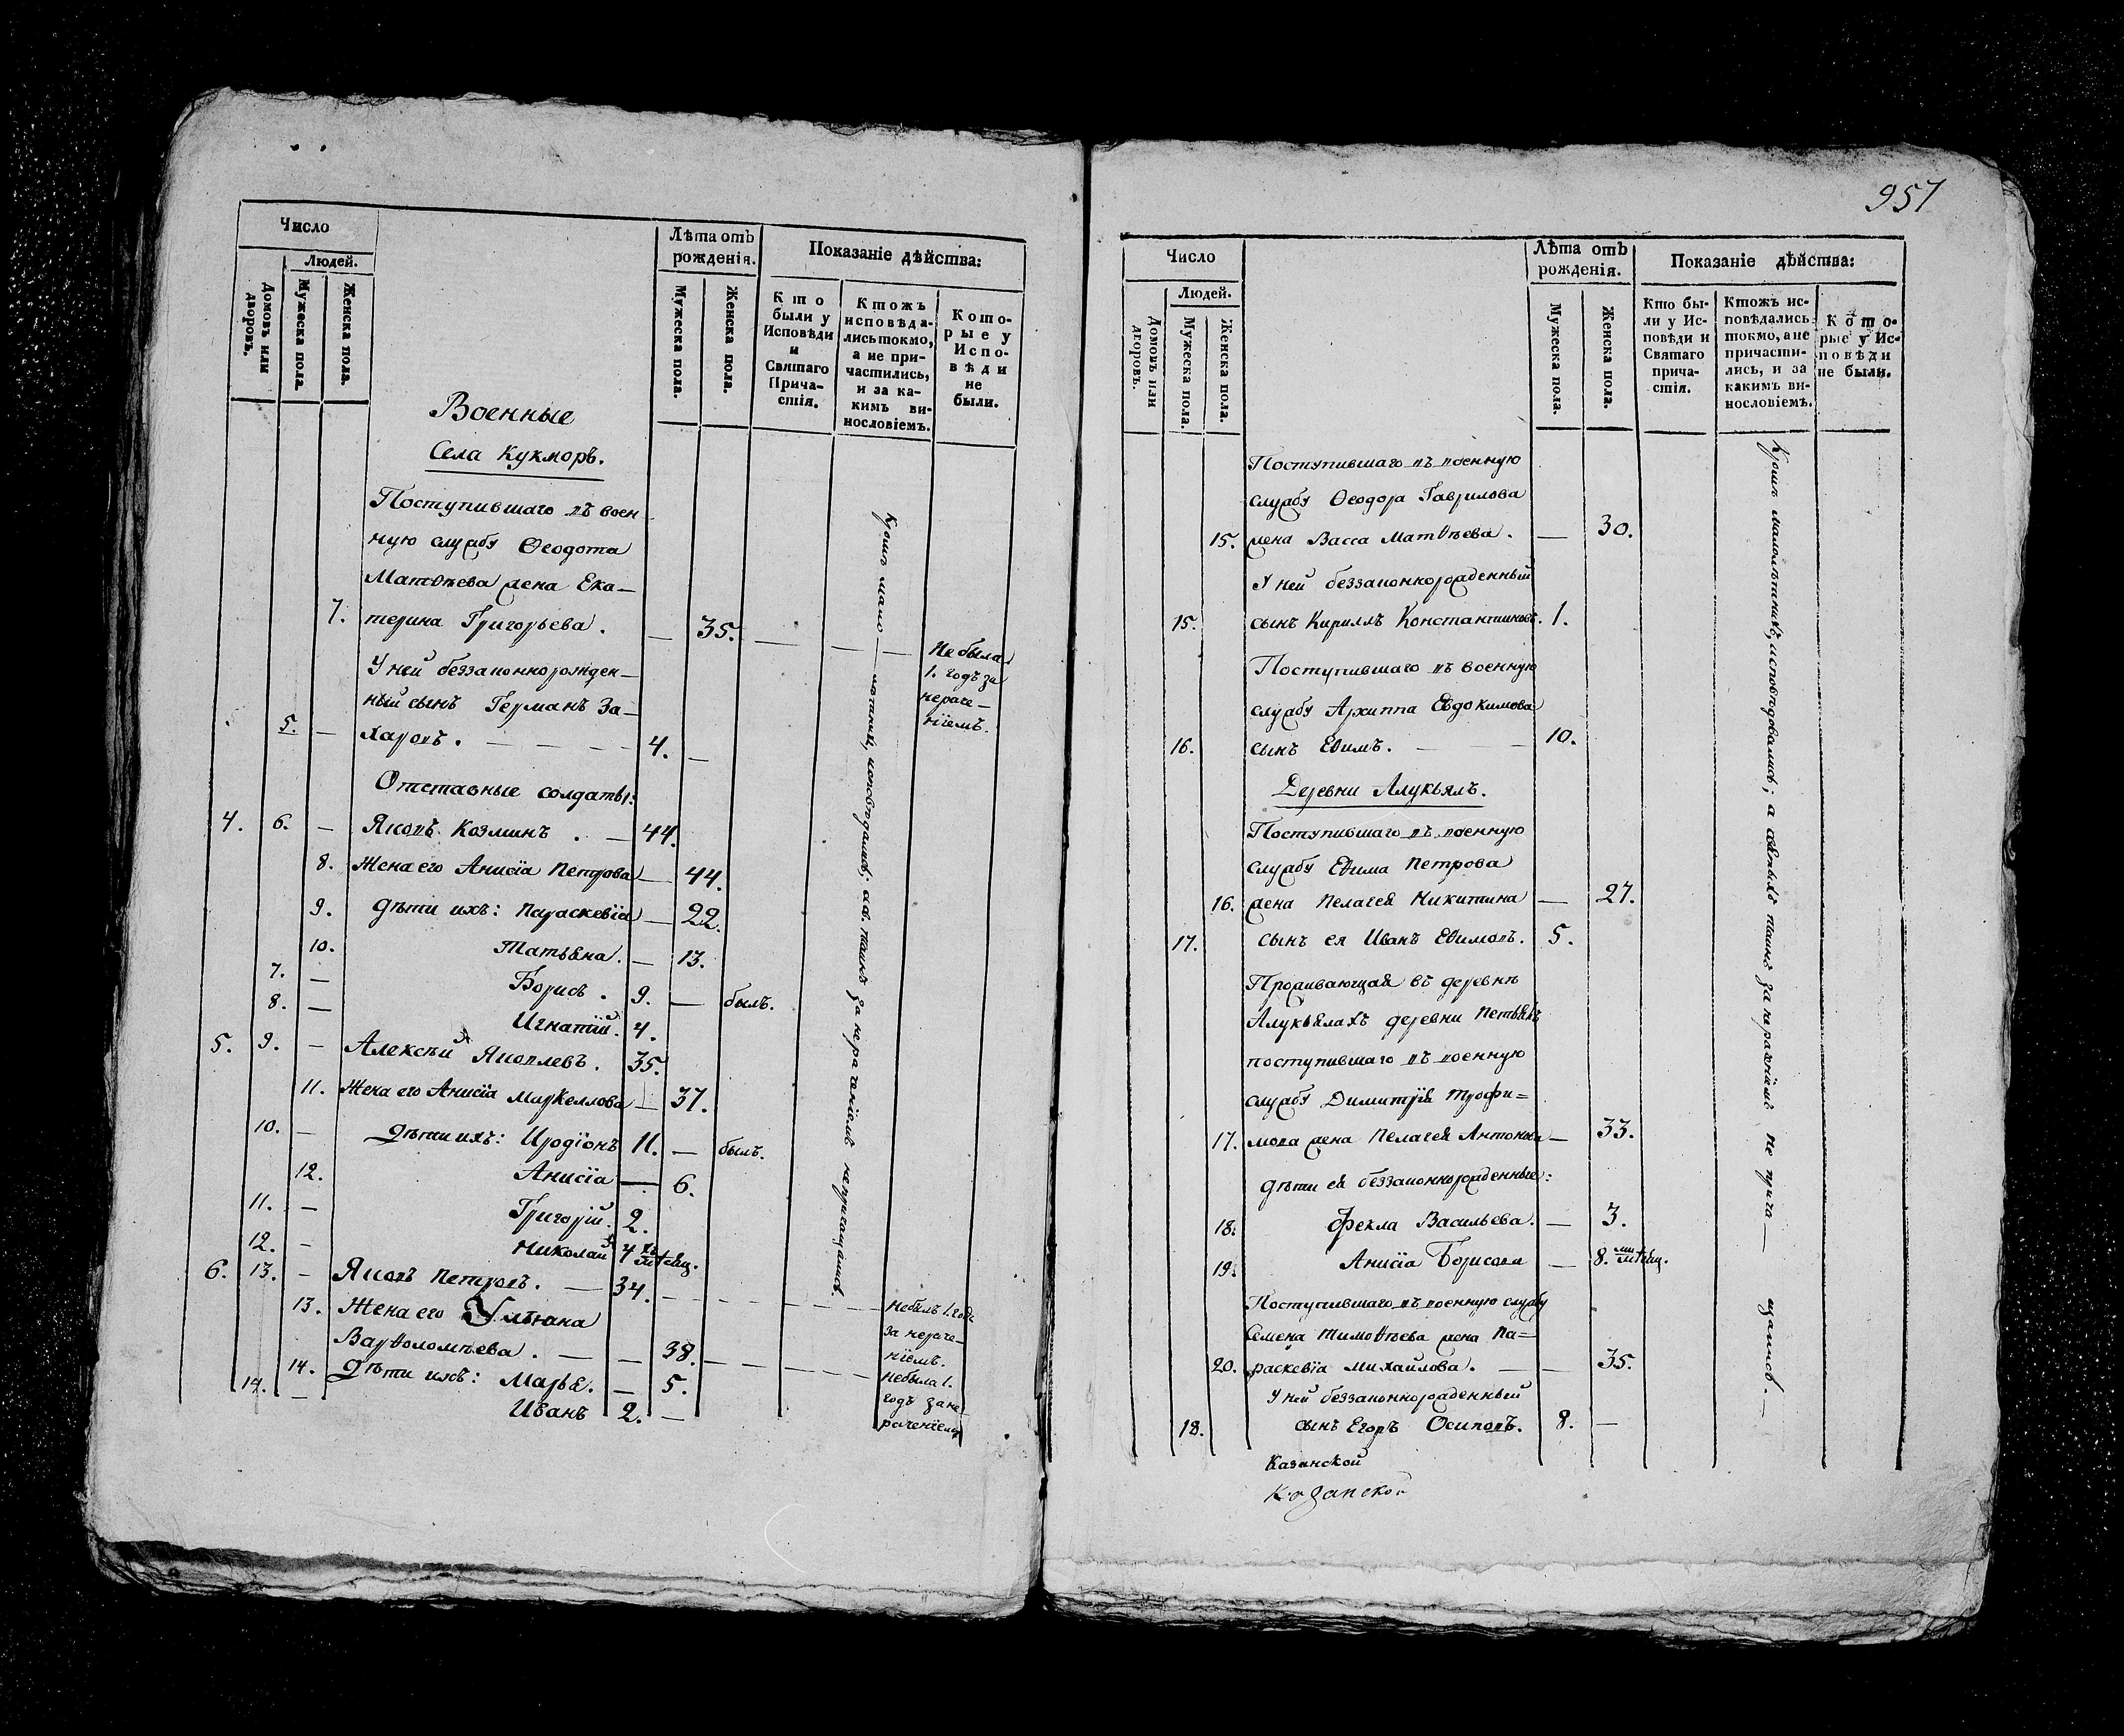 Число
Людей.
Домовъ или дворовъ.
Мужеска пола.
Женска пола.
Лѣта отъ
рожденія.
Мужеска пола.
Женска пола.
Показаніе дѣйства:
Кто
были у
Исповѣди
и
Святаго
Прича-
стія.
Ктожъ
исповѣда-
лись токмо,
а не при-
частились,
и за ка-
кимъ ви-
нословіемъ.
Кото-
рые у
Испо-
вѣди
не
были.
Военные
Села Кукморъ.
Поступившаго въ воен
ную службу Ѳеодота
Матѳѣева жена Ека-
7. терина Григорьева. — 35. — — —
Не была
1. годъ за
нераче-
ніемъ.
У ней беззаконнорожден-
ный сынъ Германъ За-
5. — харовъ. — — — 4. —
Отставные солдаты:
4. 6. — Яковъ Козминъ. — 44.
8. Жена его Анисія Петрова — 44.
9. Дѣти ихъ: Параскевія — 22.
10. Татьяна. — 13.
7. — Борисъ. 9. — былъ.
8. — Игнатій. 4.
5. 9. — Алексѣй Яковлевъ. 35.
11. Жена его Анисія Маркеллова — 37.
10. — Дѣти ихъ: Иродіонъ 11. — былъ.
12. Анисія — 6.
11. — Григорій. 2.
12. — Николай 4 мѣсяц.
6. 13. — Яковъ Петровъ. — 34. — — — —
небылъ 1. годъ
за нераче-
ніемъ.
13. Жена его Ульяна
Варѳоломѣева. — — 38. — — — —
небыла 1.
годъ зане-
раченіемъ
14. Дѣти ихъ: Марья. — 5.
14. — Иванъ 2. —
Кромѣ мало — лѣтнихъ, исповѣдались; а св. таинъ за нераченіемъ непричащались.
957
Число
Людей.
Домовъ или дворовъ.
Мужеска пола.
Женска пола.
Лѣта отъ
рожденія.
Мужеска пола.
Женска пола.
Показаніе дѣйства:
Кто бы-
ли у Ис-
повѣди и
Святаго
прича-
стія.
Ктожъ ис-
повѣдались
токмо, а не
причасти-
лись, и за
какимъ ви-
нословіемъ.
Кото-
рые у Ис-
повѣди
не были.
Поступившаго въ военную
службу Ѳеодора Гаврилова
15. жена Васса Матѳѣева. — 30.
У ней беззаконнорожденный
15. сынъ Кириллъ Константиновъ. 1.
Поступившаго въ военную
службу Архиппа Евдокимова
16. сынъ Еѳимъ. — — 10.
Деревни Алукьялъ.
Поступившаго въ военную
службу Еѳима Петрова
16. жена Пелагея Никитина — 27.
17. сынъ ея Иванъ Еѳимовъ. 5.
Проживающая въ деревнѣ
Алукьялахъ деревни
поступившаго въ военную
службу Димитрія Трофи=
17. мова жена Пелагея Антонова — 33.
дѣти ея беззаконнорожденные:
18. Фекла Васильева. — 3.
19. Анисія Борисова — 8. мѣсяц.
Поступившаго въ военную службу
Семена Тимоѳѣева жена Па=
20. раскевія Михайлова. — — 35.
У ней беззаконнорожденный
18. сынъ Егоръ Осиповъ. 8. —
Кромѣ малолѣтнихъ, исповѣдовались; а святыхъ таинъ за нераченіемъ не прича — щались. —
Казанской
Казанской